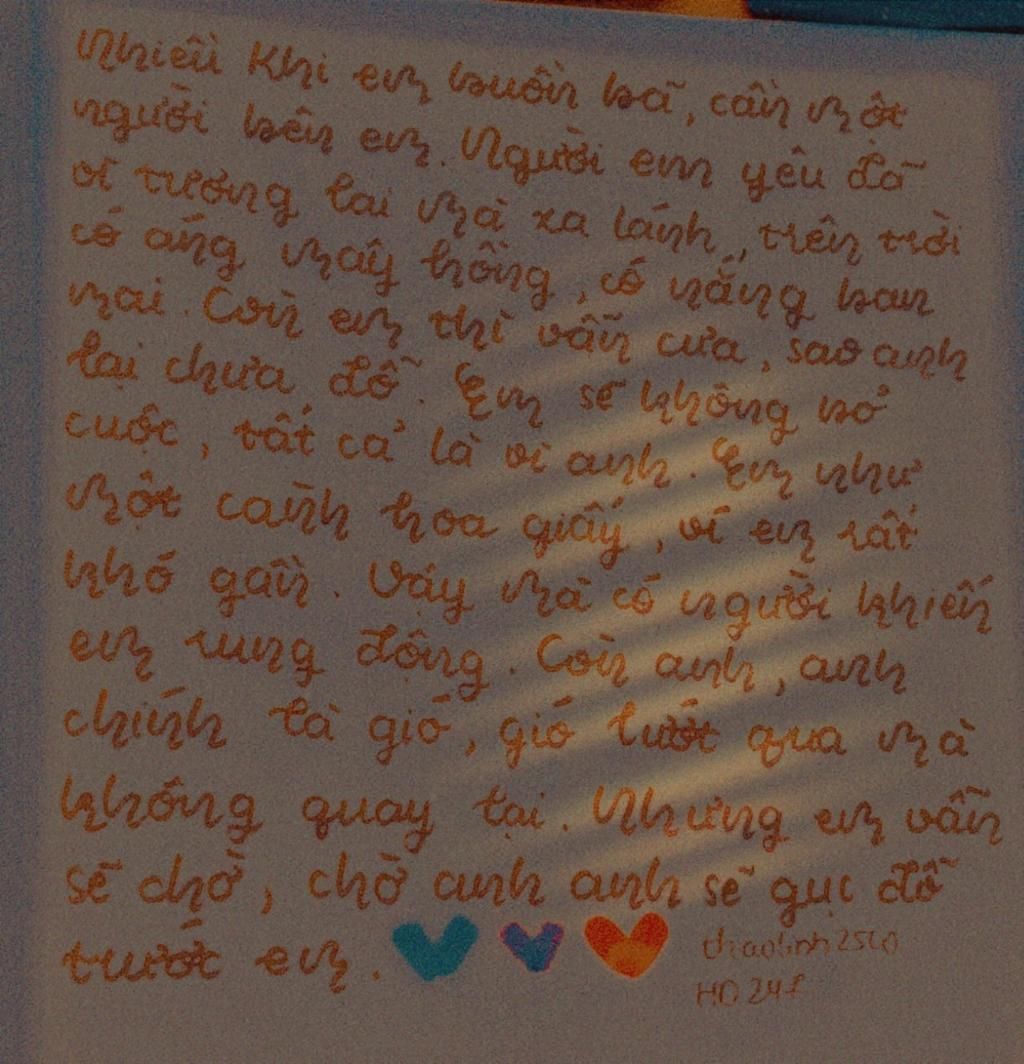 Nhiều khi em buồn bã, cần một
người bên em. Người em yêu đã
vì tương lai mà xa lánh, trên trời
có áng mây hồng, có nắng ban
mai. Còn em thì vẫn cưa, sao anh
lại chưa đổ. Em sẽ không bỏ
cuộc, tất cả là vì anh. Em như
một cành hoa giấy, vì em rất
khó gần. Vậy mà có người khiến
em rung động. Còn anh, anh
chính là gió, gió lướt qua mà
không quay lại. Nhưng em vẫn
sẽ chờ, chờ anh anh sẽ gục đổ
trước em.
thaolinh2510